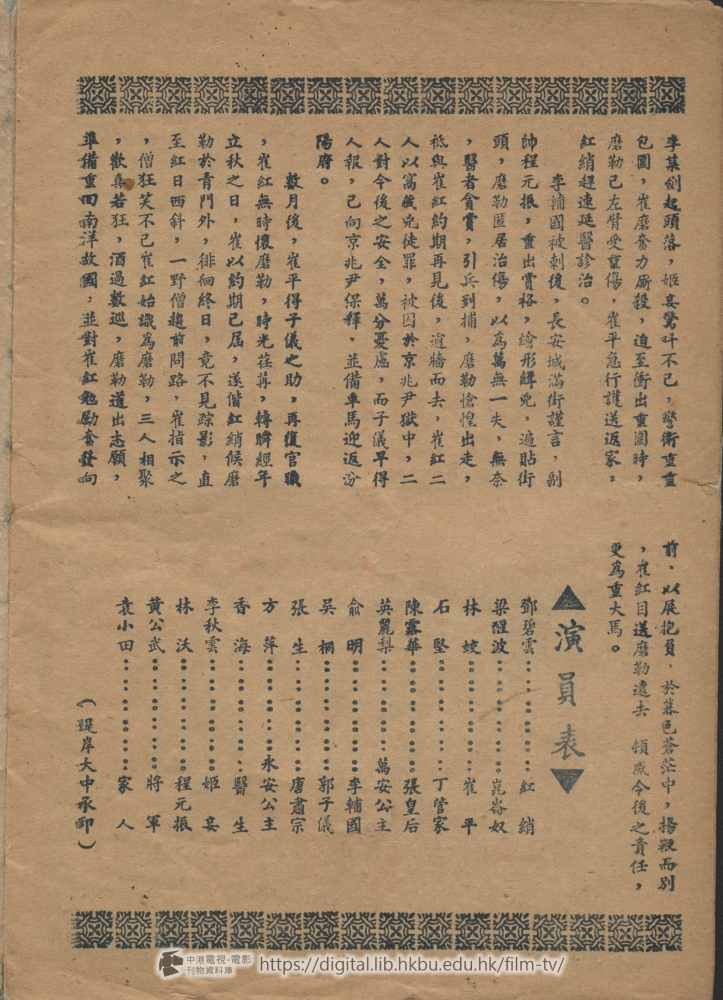 李某劍起頭落，姬妾驚叫不已，警衛重重
包圍，崔磨奮力厮殺，迨至衝出重圍時，
磨勒已左臂受重傷，崔平急行護送返家，
紅綃趕速延醫診治。
李輔國被刺後，長安城滿街謹言，副
帥程元振，重出賞格，繪形緝兇，遍貼街
頭，磨勒匿居治傷，以為萬無一失，無奈
，醫者貪賞，引兵到捕，磨勒愴惶出走，
祗與崔紅約期再見後，逾牆而去，崔紅二
人以窩藏兇徒罪，被囚於京兆尹獄中，二
人對今後之安全，萬分憂慮，而子儀早得
人報，已向京兆尹保釋，並備車馬迎返汾
陽府。
數月後，崔平得子儀之助，再復官職
，崔紅無時懷磨勒，時光荏苒，轉瞬經年
立秋之日，崔以約期已屆，遂偕紅綃候磨
勒於青門外，徘徊終日，竟不見踪影，直
至紅日西斜，一野僧趨前問路，崔指示之
，僧狂笑不已崔紅始識為磨勒，三人相聚
，歡喜若狂，酒過數巡，磨勒道出志願，
準備重回南洋故國，並對崔紅勉勵奮發向
前，以展抱負，於暮色蒼茫中，揚鞭而別
，崔紅目送磨勒遠去 頓感今後之責任，
更為重大焉。
▲演員表▼
鄧碧雲⋯⋯⋯紅綃
梁醒波⋯⋯⋯崑崙奴
林蛟⋯⋯⋯崔平
石堅⋯⋯⋯丁管家
陳露華⋯⋯⋯張皇后
英麗梨⋯⋯⋯萬安公主
俞明⋯⋯⋯李輔國
吳桐⋯⋯⋯郭子儀
張生⋯⋯⋯唐肅宗
方萍⋯⋯⋯永安公主
香海⋯⋯⋯醫生
李秋雲⋯⋯⋯姬妾
林沃⋯⋯⋯程元振
黃公武⋯⋯⋯將軍
袁小田⋯⋯⋯家人
（堤岸大中承印）
中港電視·電影
刊物資料庫
https://digital.lib.hkbu.edu.hk/film-tv/